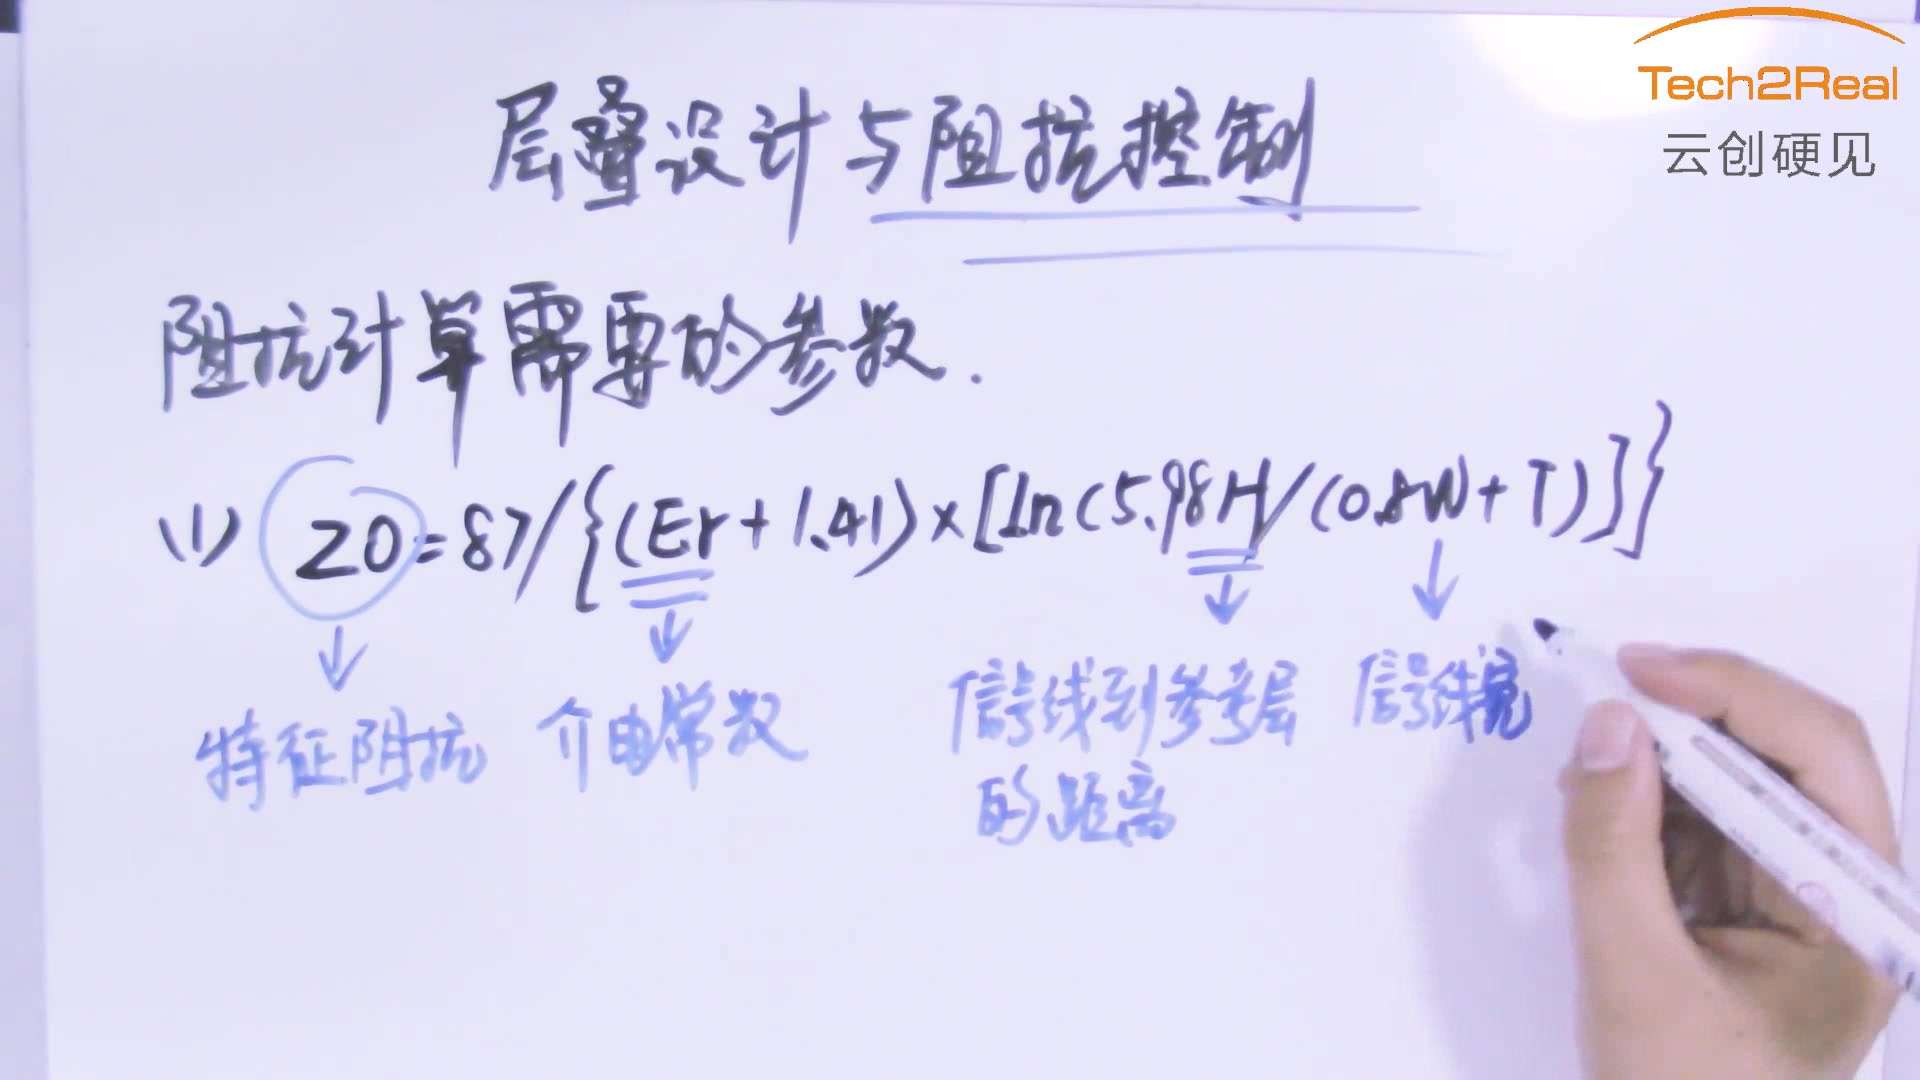 Tech2Real
云创硬见
层叠设计与阻抗控制
阻抗计算需要的参数.
(1) Z0=87/{(Er+1.41)×[ln(5.98H/(0.8W+T)]}
特征阻抗 介电常数 信号线到参考层 信号线宽
的距离